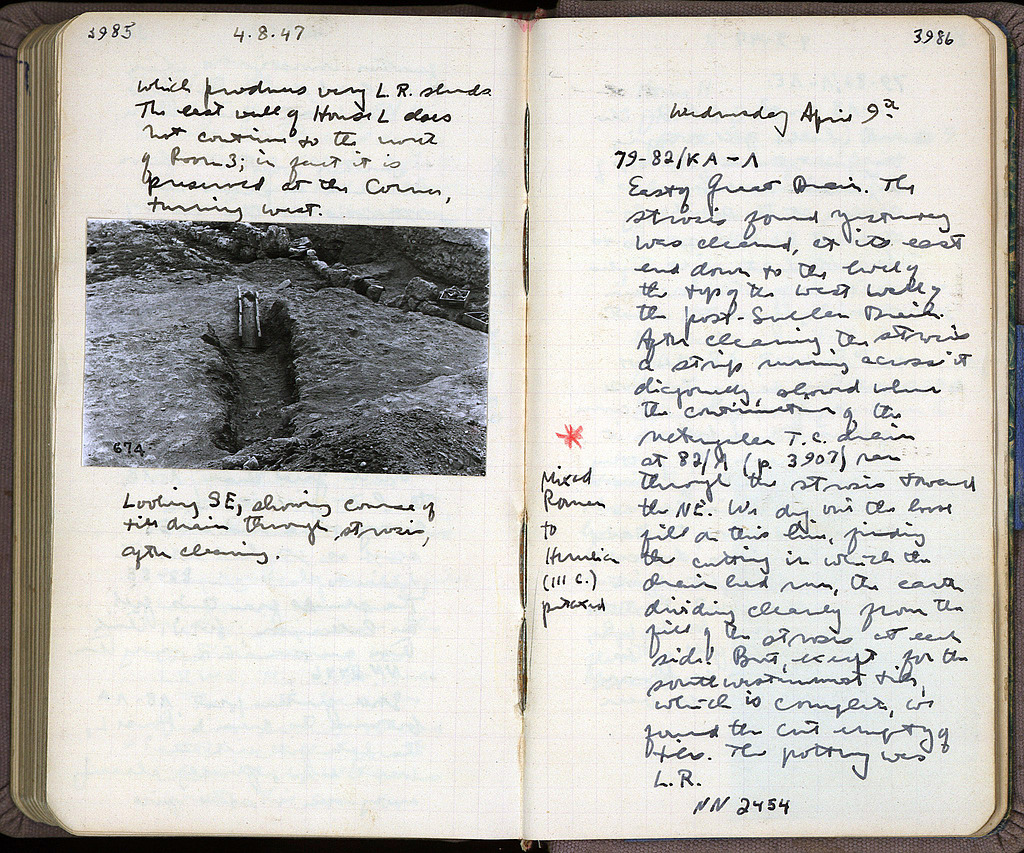 3985
4.8.47
which produces very L.R. sherds
The east wall of House L does
not continue to the north
of Room 3; in fact it is
preserved at the corner,
turning west.
674
Looking SE, showing course of
tile drain through strosis,
after cleaning.
3986
Wednesday April 9th
79-82/ΚΑ-Λ
East of Great Drain. The
strosis found yesterday
was cleaned, at its east
end down to the level of
the top of the west wall of
the post-Sullan Drain.
After cleaning the strosis
a strip running across it
diagonally, showed where
the continuation of the
rectangular T.C. drain
at 82/Λ (p. 3907) ran
through the strosis toward
the NE. We dig out the loose
fill on this line, finding
the cutting in which the
drain had run, the earth
dividing cleanly from the
fill of the strosis at each
side. But, except for the
southwesternmost tile,
which is complete, we
found the cut empty of
tiles. The pottery was
L.R.
NN 2454
Mixed
Roman
to
Herulian
(III C.)